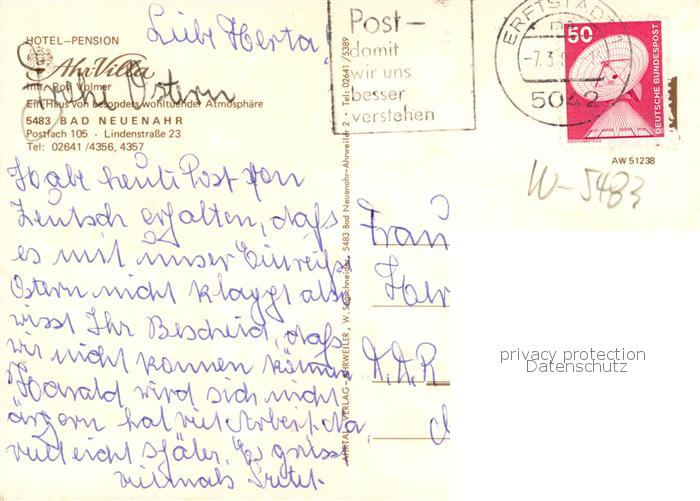 HOTEL-PENSION
Ahr Villa
Inh. Rolf Volmer
Ein Haus von besonders wohltuender Atmosphäre
5483 BAD NEUENAHR
Postfach 105 · Lindenstraße 23
Tel: 02641 /4356, 4357
Liebe Herta!
Frohe Ostern
Habe heute Post von
erhalten, daß
es mit unser Einreise
Ostern nicht klappt also
wisst Ihr Bescheid, daß
wir nicht kommen können
Harald wird sich nicht
ärgern hat viel Arbeit. Na,
vielleicht später. Es grüsst
vielmals
AHRTAL-VERLAG - AHRWEILER, W. Segschneider, 5483 Bad Neuenahr-Ahrweiler 2 · Tel: 02641 /5389
Post-
damit
wir uns
besser
verstehen
ERFTSTADT
-7.3.
5042
50
DEUTSCHE BUNDESPOST
AW 51238
W-5483
Frau
Her
D.D.R
privacy protection
Datenschutz